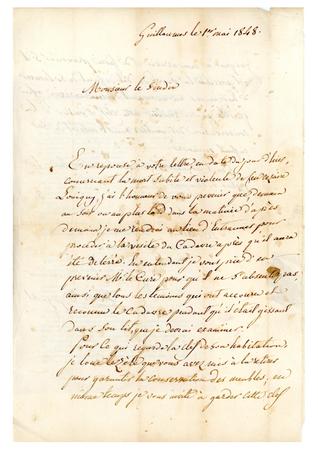 Guillaumes le 1er mai 1848.
Monsieur le Syndic
En reponse à votre lettre, en date du jour d'hier,
concernant la mort subite et violente de feu
j'ai l'honneur de vous prevenir que demain
au soir ou au plus tard dans la matinée d'après
demain, je me rendrai au lieu d'Entraunes pour
procéder à la visite du Cadavre après qu'il aura
été deterré. En attendant je vous prie d'en
prevenir Mr le Curé pour qu'il ne s'absente pas,
ainsi que tous les temoins qui ont accouru et
reconnu le Cadavre pendant qu'il etait gissant
dans son lit, que je devrai examiner.
Pour ce qui regarde la clef de son habitation
je loue le zèle que vous avez mis à la retirer
pour garantir la conservation des meubles, en
même temps je vous invite à garder cette clef